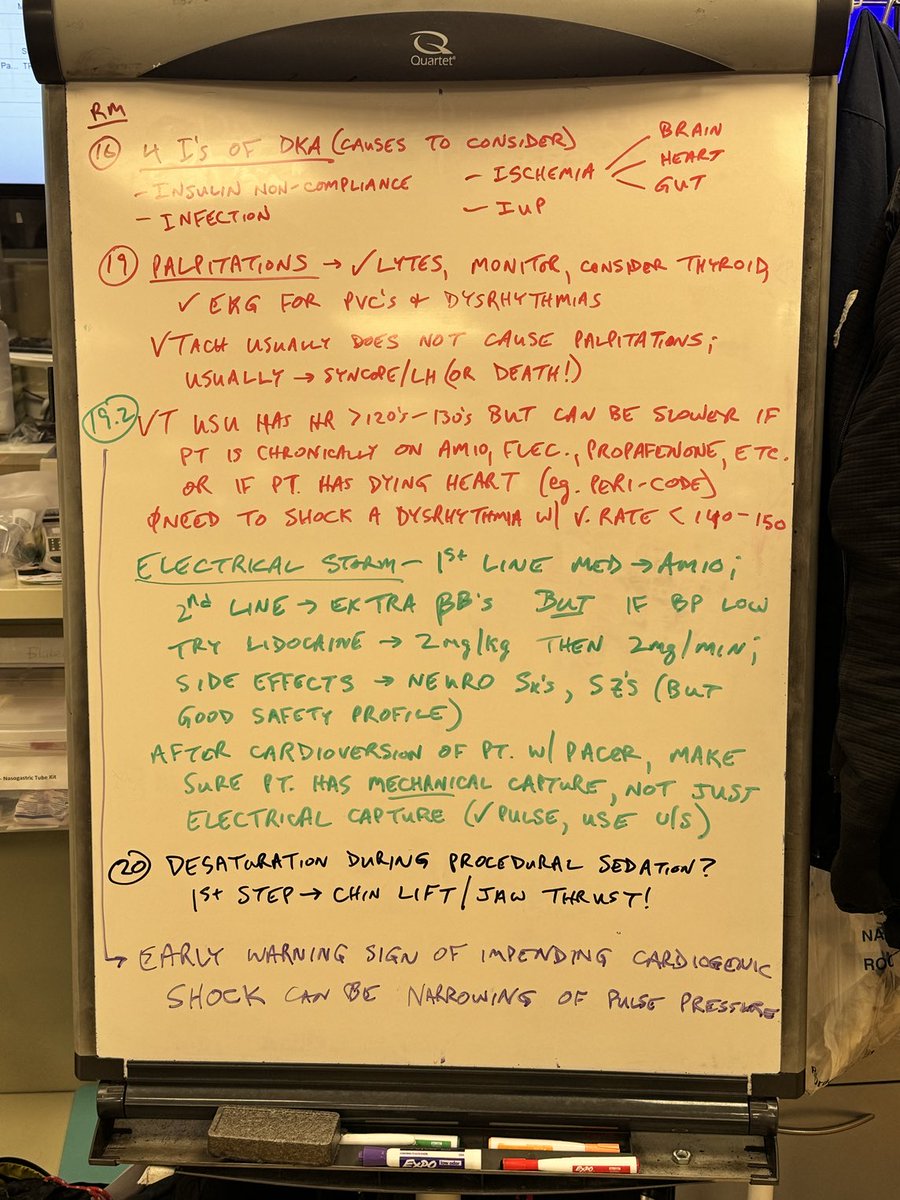 Quartet
RM
16 4 I's OF DKA (CAUSES TO CONSIDER)
- INSULIN NON-COMPLIANCE
- INFECTION
- ISCHEMIA
BRAIN
HEART
GUT
- IUP
19 PALPITATIONS → ✓LYTES, MONITOR, CONSIDER THYROID,
✓ EKG FOR PVC'S & DYSRHYTHMIAS
VTACH USUALLY DOES NOT CAUSE PALPITATIONS;
USUALLY → SYNCOPE/LH (OR DEATH!)
19.2 VT USU HAS HR >120'S-130'S BUT CAN BE SLOWER IF
PT IS CHRONICALLY ON AMIO, FLEC., PROPAFENONE, ETC.
OR IF PT. HAS DYING HEART (eg. PERI-CODE)
ØNEED TO SHOCK A DYSRHYTHMIA W/ V. RATE < 140-150
ELECTRICAL STORM - 1st LINE MED → AMIO;
2nd LINE → EXTRA βB's BUT IF BP LOW
TRY LIDOCAINE → 2mg/kg THEN 2mg/MIN;
SIDE EFFECTS → NEURO Sx's, SZ'S (BUT
GOOD SAFETY PROFILE)
AFTER CARDIOVERSION OF PT. W/ PACER, MAKE
SURE PT. HAS MECHANICAL CAPTURE, NOT JUST
ELECTRICAL CAPTURE (✓PULSE, USE U/S)
20 DESATURATION DURING PROCEDURAL SEDATION?
1st STEP → CHIN LIFT/JAW THRUST!
EARLY WARNING SIGN OF IMPENDING CARDIOGENIC
SHOCK CAN BE NARROWING OF PULSE PRESSURE
- Nasogastric Tube Kit
EXPO
EXPO